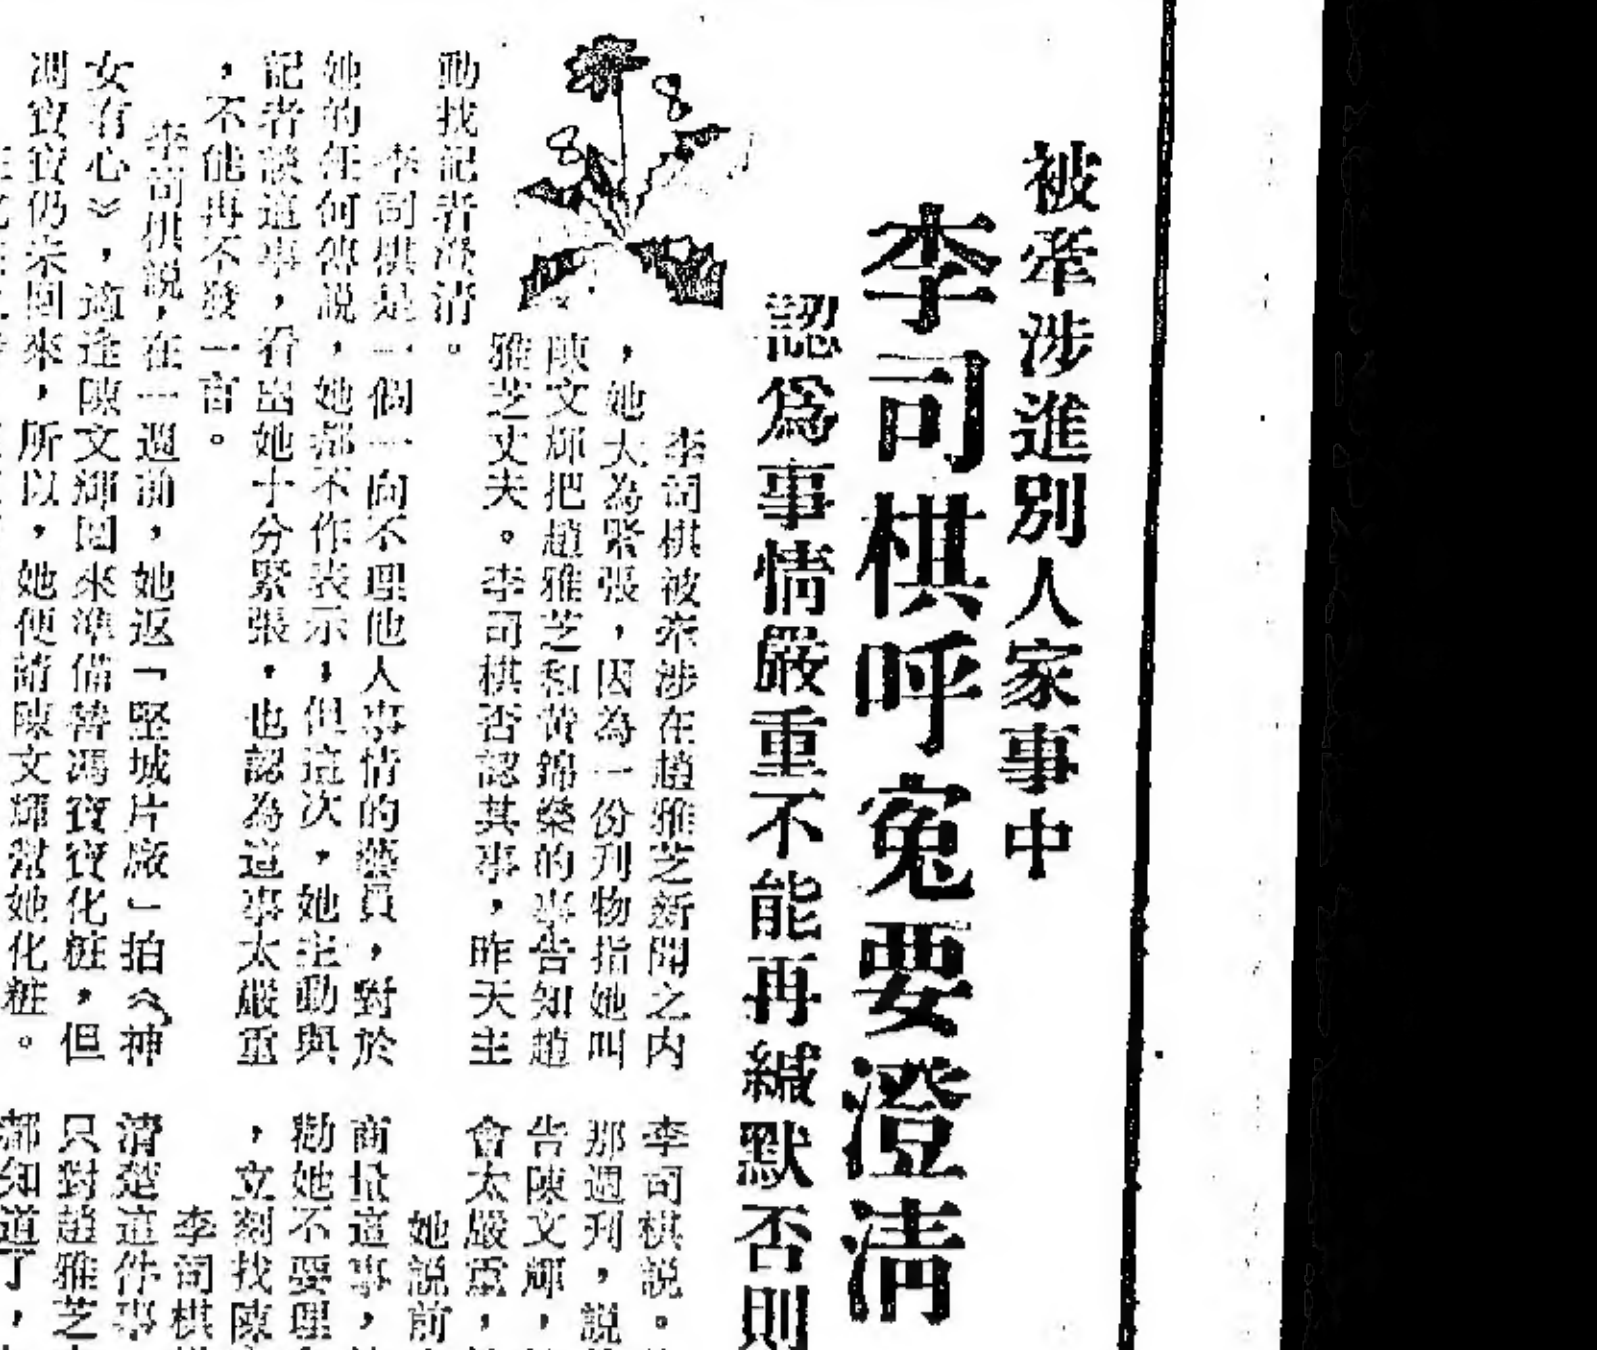 被牽涉進別人家事中
李司棋呼寃要澄清
認爲事情嚴重不能再緘默否則
李司棋被牽涉在趙雅芝新聞之内
，她大為緊張，因為一份刋物指她叫
陳文輝把趙雅芝和黄錦燊的事告知趙
雅芝丈夫。李司棋否認其事，昨天主
動找記者澄清。
李司棋是一個一向不理他人事情的藝員，對於
她的任何傳説，她都不作表示，但這次，她主動與
記者談這事，看出她十分緊張，也認為這事太嚴重
，不能再不發一言。
李司棋説，在一週前，她返「堅城片廠」拍《神
女有心》，適逢陳文輝回來準備替馮寶寶化粧，但
馮寶寶仍未回來，所以，她便請陳文輝幫她化粧。
李司棋説。
那週刋，説
告陳文輝，
會太嚴重，
她説前
商量這事，
勸她不要理
，立刻找陳
李司棋
清楚這件事
只對趙雅芝
都知道了，